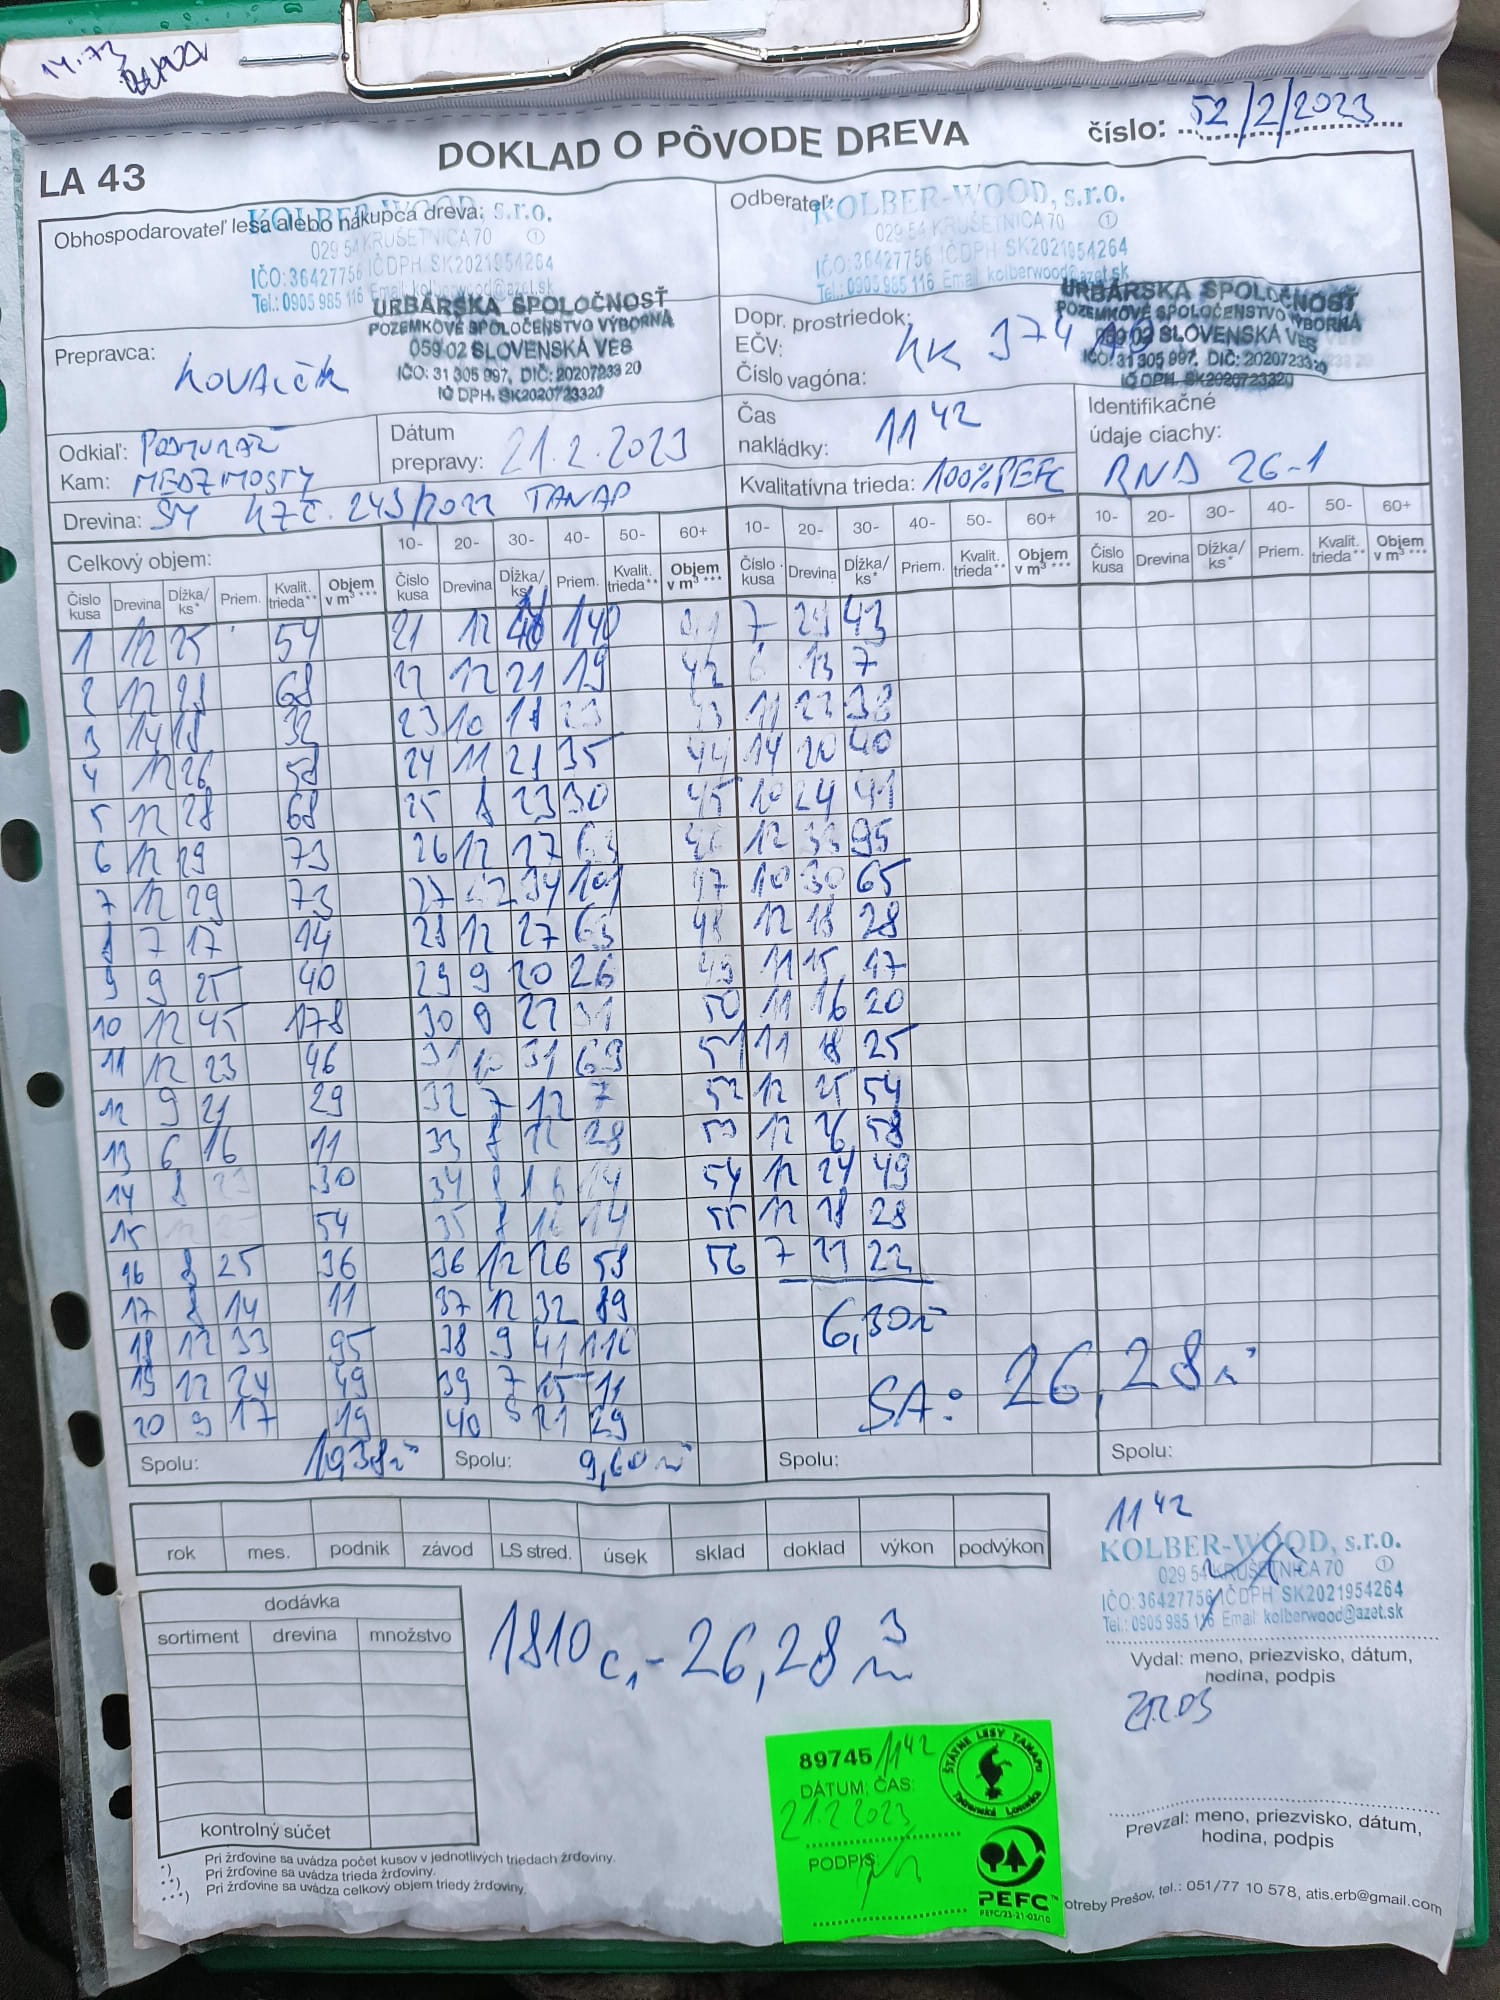 14.73
LA 43
DOKLAD O PÔVODE DREVA
číslo: 52/2/2023
Obhospodarovateľ lesa alebo nákupca dreva:
KOLBER-WOOD, s.r.o.
029 54 KRUŠETNICA 70 ①
IČO:36427756 IČDPH SK2021954264
Tel.: 0905 985 116 Email: kolberwood@azet.sk
URBÁRSKA SPOLOČNOSŤ
POZEMKOVÉ SPOLOČENSTVO VÝBORNÁ
059 02 SLOVENSKÁ VES
IČO: 31 305 997, DIČ: 2020723320
IČ DPH. SK2020723320
Odberateľ:
KOLBER-WOOD, s.r.o.
029 54 KRUŠETNICA 70 ①
IČO:36427756 IČDPH SK2021954264
Tel.: 0905 985 116 Email: kolberwood@azet.sk
URBÁRSKA SPOLOČNOSŤ
POZEMKOVÉ SPOLOČENSTVO VÝBORNÁ
059 02 SLOVENSKÁ VES
IČO: 31 305 997, DIČ: 2020723320
IČ DPH. SK2020723320
Prepravca: KOVALČÍK
Dopr. prostriedok:
EČV: KK 374
Číslo vagóna:
Odkiaľ: PODMURÁŇ
Kam: MEDZIMOSTY
Dátum
prepravy: 21.2.2023
Čas
nakládky: 11 42
Identifikačné
údaje ciachy:
RND 26-1
Kvalitatívna trieda: 100% PEFC
Drevina: SM KZČ. 243/2022 TANAP
10- 20- 30- 40- 50- 60+ 10- 20- 30- 40- 50- 60+ 10- 20- 30- 40- 50- 60+
Celkový objem:
Číslo kusa Drevina Dĺžka/ks* Priem. Kvalit. trieda** Objem v m³ ***
Číslo kusa Drevina Dĺžka/ks* Priem. Kvalit. trieda** Objem v m³ ***
Číslo kusa Drevina Dĺžka/ks* Priem. Kvalit. trieda** Objem v m³ ***
Číslo kusa Drevina Dĺžka/ks* Priem. Kvalit. trieda** Objem v m³ ***
1 12 25 54 21 12 40 140 7 29 43
2 12 28 68 22 12 21 19 42 6 13 7
3 14 18 32 23 10 18 23 43 11 22 38
4 12 26 58 24 11 21 35 44 14 20 40
5 12 28 68 25 8 23 30 45 10 24 41
6 12 29 73 26 12 27 63 46 12 33 95
7 12 29 73 27 12 34 101 47 10 30 65
8 7 17 14 28 12 27 63 48 12 18 28
9 9 25 40 29 9 20 26 49 11 15 17
10 12 45 178 30 9 22 31 50 11 16 20
11 12 23 46 31 12 31 69 51 11 18 25
12 9 21 29 32 7 12 7 52 12 25 54
13 6 16 11 33 8 22 28 53 12 26 58
14 8 23 30 34 8 16 14 54 12 24 49
15 12 25 54 35 8 16 14 55 12 18 28
16 8 25 36 36 12 26 58 56 7 21 22
17 8 14 11 37 12 32 89
18 12 33 95 38 9 41 110 6,30 m³
19 12 24 49 39 7 15 11 SA: 26,28 m³
20 9 17 19 40 21 29
Spolu: 10,38 m³ Spolu: 9,60 m³ Spolu: Spolu:
rok mes. podnik závod LS stred. úsek sklad doklad výkon podvýkon
11 42
KOLBER-WOOD, s.r.o.
029 54 KRUŠETNICA 70 ①
IČO:36427756 IČDPH SK2021954264
Tel.: 0905 985 116 Email: kolberwood@azet.sk
Vydal: meno, priezvisko, dátum,
hodina, podpis
dodávka
sortiment drevina množstvo
kontrolný súčet
1810 c,- 26,28 m³
89745 1142
DÁTUM, ČAS:
21.2 2023
PODPIS:
ŠTÁTNE LESY TANAPu
Tatranská Lomnica
PEFC™
PEFC/23-21-03/10
Prevzal: meno, priezvisko, dátum,
hodina, podpis
*) Pri žrďovine sa uvádza počet kusov v jednotlivých triedach žrďoviny.
**) Pri žrďovine sa uvádza trieda žrďoviny.
***) Pri žrďovine sa uvádza celkový objem triedy žrďoviny.
otreby Prešov, tel.: 051/77 10 578, atis.erb@gmail.com